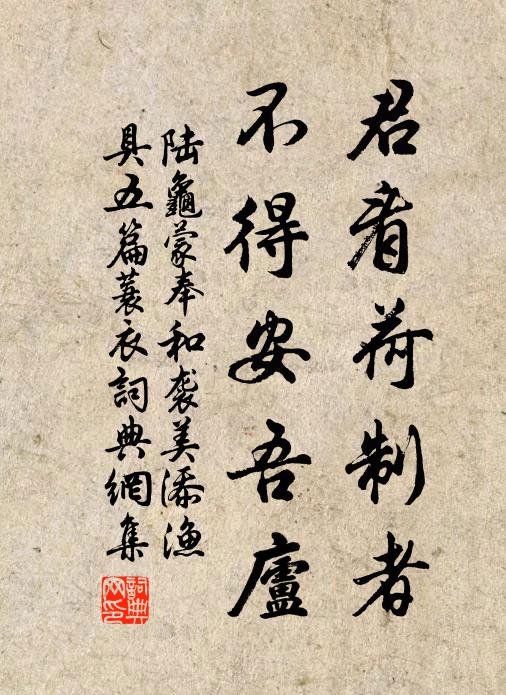 君看荷制者
不得安吾廬
陆龜蒙奉和袭美添漁
具五篇蓑衣詞典網集
詞典